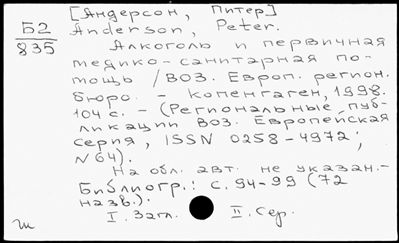 [Андерсон, Питер]
Б2
835
Anderson, Peter.
Алкоголь и первичная
медико-санитарная по-
мощь / ВОЗ. Европ. регион.
бюро. - Копенгаген, 1998.
104 с. - (Региональные пуб-
ликации ВОЗ. Европейская
серия, ISSN 0258-4972;
N 64).
На обл. авт. не указан. -
Библиогр.: с. 94-99 (72
назв.).
I. Загл. II. Сер.